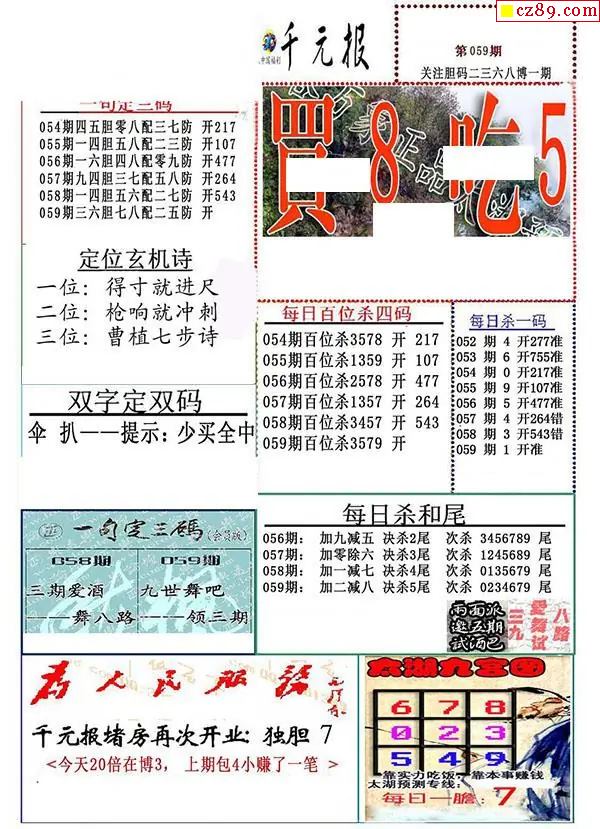 cz89.com
千元报
中国福彩
第059期
关注胆码二三六八博一期
買8吃5
一句定三码
054期四五胆零八配三七防 开217
055期一四胆五八配二三防 开107
056期一六胆四八配零九防 开477
057期九四胆三七配五八防 开264
058期一四胆五六配二七防 开543
059期三六胆七八配二五防 开
定位玄机诗
一位：得寸就进尺
二位：枪响就冲刺
三位：曹植七步诗
每日百位杀四码
054期百位杀3578 开 217
055期百位杀1359 开 107
056期百位杀2578 开 477
057期百位杀1357 开 264
058期百位杀3457 开 543
059期百位杀3579 开
每日杀一码
052 期 4 开277准
053 期 6 开755准
054 期 0 开217准
055 期 9 开107准
056 期 5 开477准
057 期 4 开264错
058 期 3 开543错
059 期 1 开准
双字定双码
伞 扒——提示：少买全中
一句定三碼(会员版)
058期 059期
三期爱酒 九世舞吧
——舞八路 ——领三期
每日杀和尾
056期： 加九减五 决杀2尾 次杀 3456789 尾
057期： 加零除六 决杀3尾 次杀 1245689 尾
058期： 加一减七 决杀4尾 次杀 0135679 尾
059期： 加二减八 决杀5尾 次杀 0234679 尾
两面派
邀五期
试酒巴
三九
爱舞试
八路
为人民服务
千元报堵房再次开业：独胆 7
<今天20倍在博3， 上期包4小赚了一笔 >
太湖九宫图
6 7 8
0 2 3
5 4 9
靠实力吃饭：靠本事赚钱
太湖预测专线：
每日一胆：7